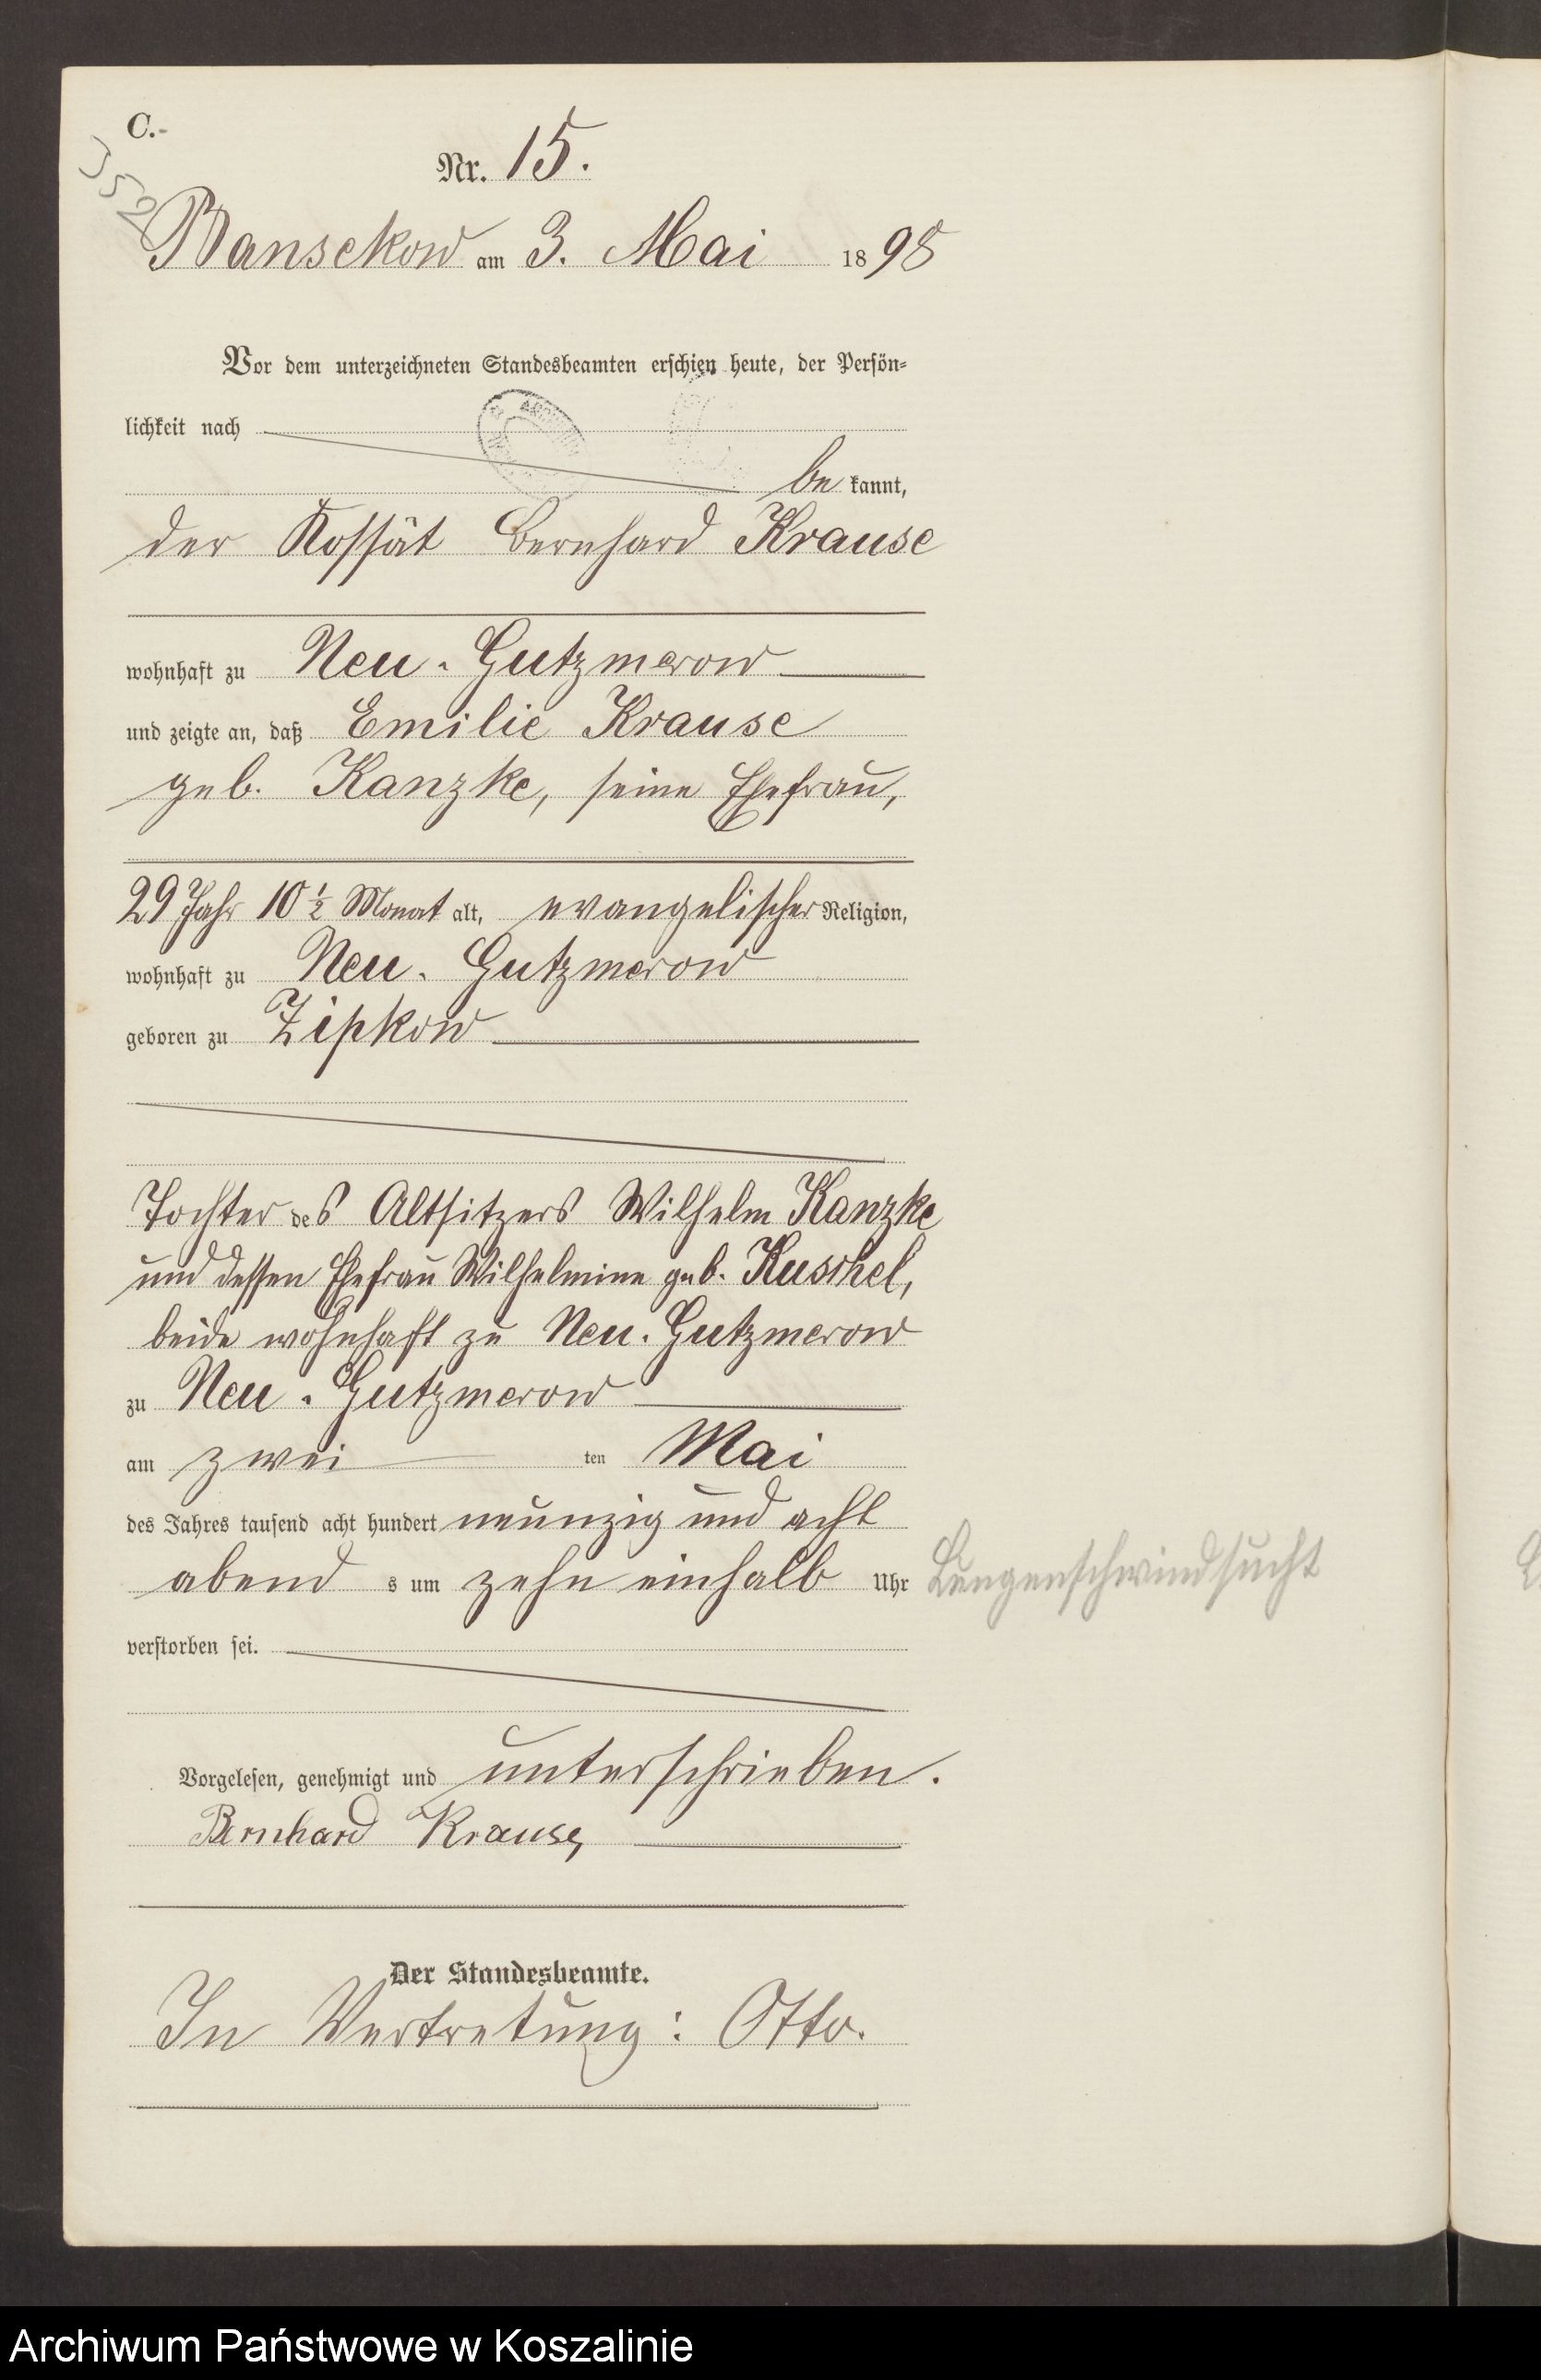 C.
552
Nr. 15.
Bansekow am 3. Mai 1898
Vor dem unterzeichneten Standesbeamten erschien heute, der Persön-
lichkeit nach
be kannt,
der Kossät Bernhard Krause
wohnhaft zu Neu-Gutzmerow
und zeigte an, daß Emilie Krause
geb. Kanzke, seine Ehefrau,
29 Jahr 10 ½ Monat alt, evangelischer Religion,
wohnhaft zu Neu-Gutzmerow
geboren zu Zipkow
Tochter des Altsitzers Wilhelm Kanzke
und dessen Ehefrau Wilhelmine geb. Kuschel,
beide wohnhaft zu Neu-Gutzmerow
zu Neu-Gutzmerow
am zwei ten Mai
des Jahres tausend acht hundert neunzig und acht
abend s um zehn einhalb Uhr
Lungenschwindsucht
verstorben sei.
Vorgelesen, genehmigt und unterschrieben.
Bernhard Krause,
Der Standesbeamte.
In Vertretung: Otto.
Archiwum Państwowe w Koszalinie